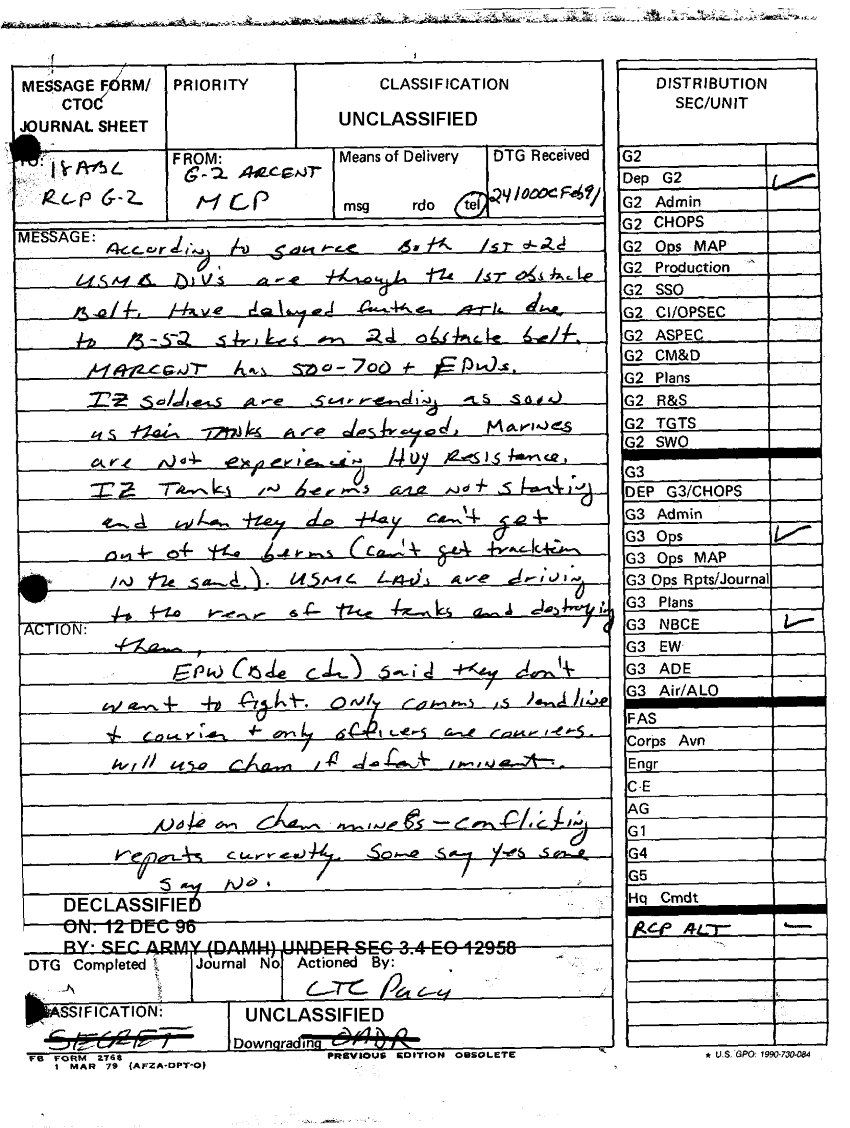 MESSAGE FORM/
CTOC
JOURNAL SHEET
PRIORITY
CLASSIFICATION
UNCLASSIFIED
TO: 18 ABC
RCP G-2
FROM:
G-2 ARCENT
MCP
Means of Delivery
msg rdo tel
DTG Received
241000CFeb91
MESSAGE:
According to source Both 1ST & 2d
USMC DIV's are through the 1ST obstacle
Belt. Have delayed further ATK due
to B-52 strikes on 2d obstacle belt.
MARCENT has 500-700+ EPWs.
IZ soldiers are surrending as soon
as their TANKS are destroyed. Marines
are Not experiencing Hvy Resistance.
IZ Tanks in berms are not starting
and when they do they can't get
out of the berms (can't get tracktion
in the sand.). USMC LAV's are driving
to the rear of the tanks and destroying
ACTION:
them.
EPW (Bde cdr) said they don't
want to fight. Only comms is landline
+ courier + only officers are couriers.
will use chem if defeat iminent.
Note on chem mines - conflicting
reports currently. Some say yes some
say No.
DECLASSIFIED
ON: 12 DEC 96
BY: SEC ARMY (DAMH) UNDER SEC 3.4 EO 12958
DTG Completed
Journal No
Actioned By:
LTC
CLASSIFICATION:
SECRET
UNCLASSIFIED
Downgrading OADR
FB FORM 2768
1 MAR 79 (AFZA-DPT-O)
PREVIOUS EDITION OBSOLETE
DISTRIBUTION
SEC/UNIT
G2
Dep G2
G2 Admin
G2 CHOPS
G2 Ops MAP
G2 Production
G2 SSO
G2 CI/OPSEC
G2 ASPEC
G2 CM&D
G2 Plans
G2 R&S
G2 TGTS
G2 SWO
G3
DEP G3/CHOPS
G3 Admin
G3 Ops
G3 Ops MAP
G3 Ops Rpts/Journal
G3 Plans
G3 NBCE
G3 EW
G3 ADE
G3 Air/ALO
FAS
Corps Avn
Engr
C-E
AG
G1
G4
G5
Hq Cmdt
RCP ALT
★ U.S. GPO: 1990-730-084